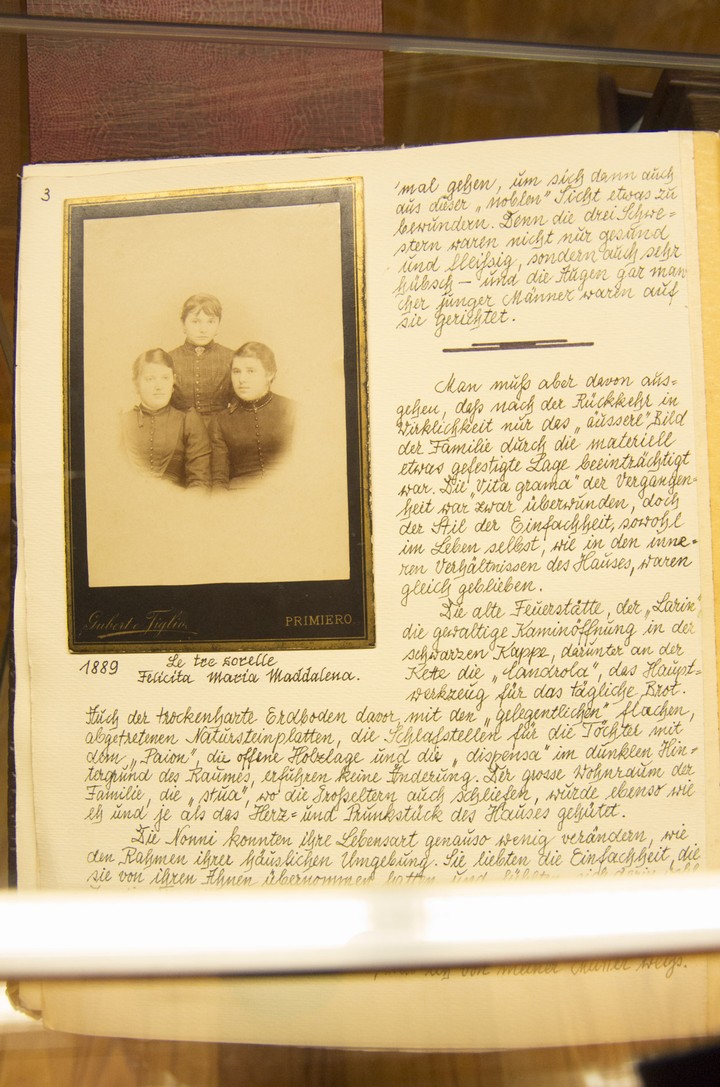 3
'mal gehen, um sich dann auch
aus dieser „noblen" Sicht etwas zu
bewundern. Denn die drei Schwe=
stern waren nicht nur gesund
und fleißig, sondern auch sehr
hübsch – und die Augen gar man
cher junger Männer waren auf
sie gerichtet.
Man muß aber davon aus=
gehen, daß nach der Rückkehr in
Wirklichkeit nur das „äussere" Bild
der Familie durch die materiell
etwas gefestigte Lage beeinträchtigt
war. Die „Vita grama" der Vergangen=
heit war zwar überwunden, doch
der Stil der Einfachheit, sowohl
im Leben selbst, wie in den inne=
ren Verhältnissen des Hauses, waren
gleich geblieben.
Die alte Feuerstätte, der „Larin",
die gewaltige Kaminöffnung in der
schwarzen Kappe, darunter an der
Kette die „Candrola", das Haupt=
werkzeug für das tägliche Brot.
Gubert e Figlio
PRIMIERO
1889 Le tre sorelle
Felicita Maria Maddalena.
Auch der trockenharte Erdboden davor, mit den „gelegentlichen" flachen,
abgetretenen Natursteinplatten, die Schlafstellen für die Töchter mit
dem „Paion", die offene Holzlage und die „dispensa" im dunklen Hin=
tergrund des Raumes, erfuhren keine Änderung. Der grosse Wohnraum der
Familie, die „stua", wo die Großeltern auch schliefen, wurde ebenso wie
eh und je als das Herz= und Prunkstück des Hauses gehütet.
Die Nonni konnten ihre Lebensart genauso wenig verändern, wie
den Rahmen ihrer häuslichen Umgebung. Sie liebten die Einfachheit, die
sie von ihren Ahnen übernommen hatten und
von meiner Mutter weiß.